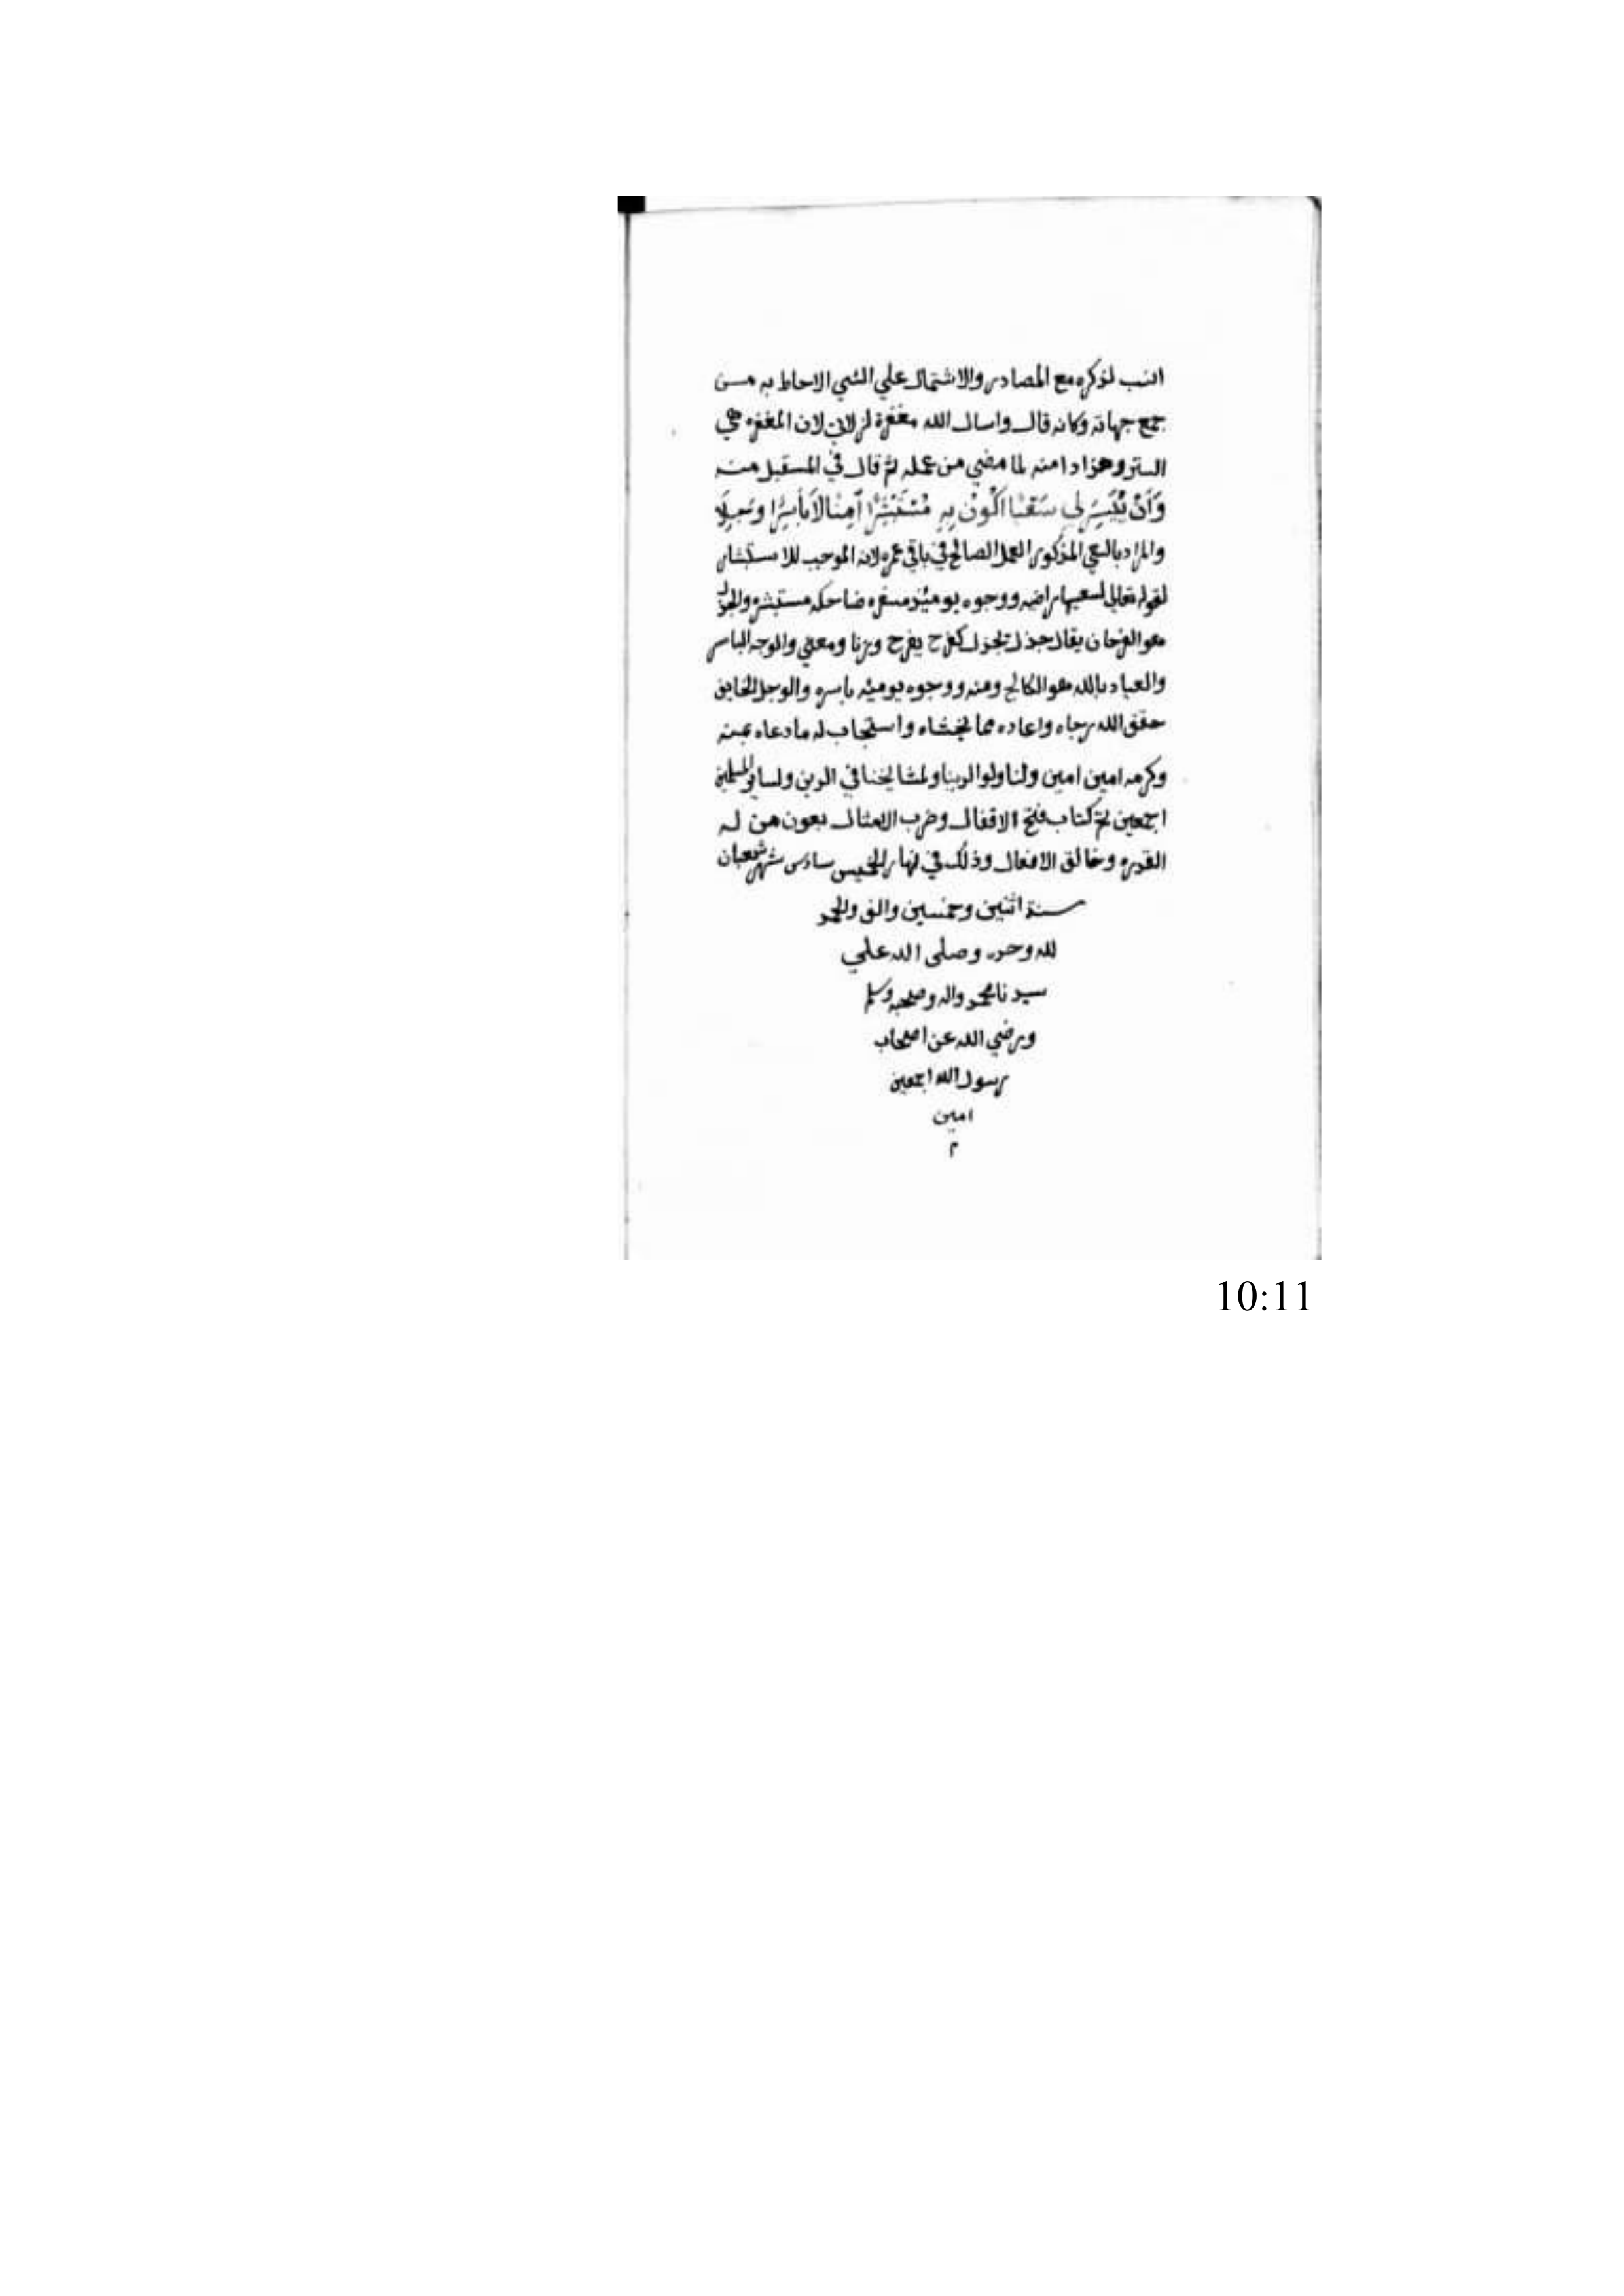 انسب لذكره مع المصادر والاشتمال علي الشي الاحاط به من
جمع جهاته وكانه قال واسال الله مغفرة لزلاتي لان المغفره هي
الستر وهذا دامنه لما مضي من عمله ثم قال في المستقبل منه
وَاَنْ يُيَسِّرَ لِي سَعْيًا اَكُونُ بِهِ مُسْتَبْشِرًا آمِنًا لاَ بَاسِرًا وَجِلاَ
والمراد بالسعي المذكور العمل الصالح في باقي عمره لانه الموجب للاستبشار
لقوله تعالي لسعيها راضيه ووجوه يوميذ مسفره ضاحكه مستبشره والجذل
هو الفرحان يقال جذل يجذل كفرح يفرح وزنا ومعني والوجه الباسر
والعياد بالله هو الكالح ومنه ووجوه يوميذ باسره والوجل الخايف
حقق الله رجاه واعاده مما يخشاه واستجاب له ما دعاه بمنه
وكرمه امين امين ولنا ولوالدينا ولمشايخنا في الدين ولساير المسلمين
اجمعين تم كتاب فتح الاقفال وضرب الامثال بعون من له
القدره وخالق الافعال وذلك في نهار الخميس سادس شهر شعبان
سنة اثنين وخمسين والف والحمد
لله وحده وصلى الله علي
سيدنا محمد واله وصحبه وسلم
ورضي الله عن اصحاب
رسول الله اجمعين
امين
م
10:11